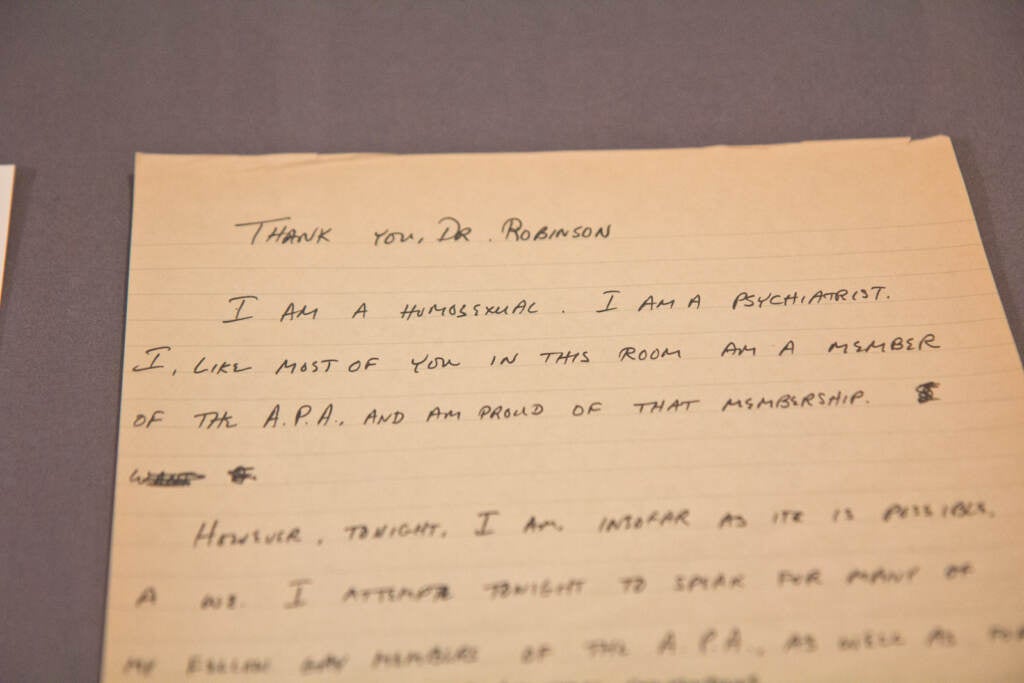 THANK YOU, DR. ROBINSON
I AM A HOMOSEXUAL. I AM A PSYCHIATRIST.
I, LIKE MOST OF YOU IN THIS ROOM AM A MEMBER
OF THE A.P.A., AND AM PROUD OF THAT MEMBERSHIP.
WANT
HOWEVER, TONIGHT, I AM, INSOFAR AS IT IS POSSIBLE,
A WE. I ATTEMPT TONIGHT TO SPEAK FOR MANY OF
MY FELLOW GAY MEMBERS OF THE A.P.A., AS WELL AS FOR